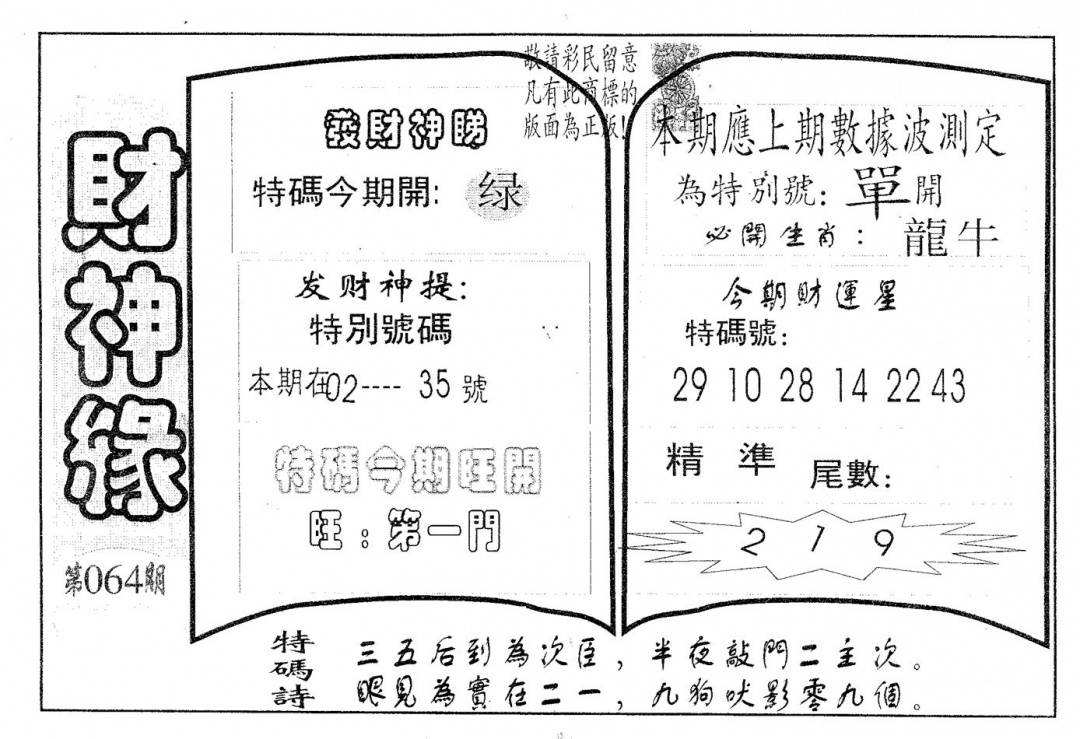 財神緣
第064期
敬請彩民留意
凡有此商標的
版面為正版!
發財神睇
特碼今期開: 绿
发财神提:
特別號碼
本期在02---- 35 號
特碼今期旺開
旺:第一門
本期應上期數據波測定
為特別號: 單開
必開生肖: 龍牛
今期財運星
特碼號:
29 10 28 14 22 43
精 準 尾數:
2 1 9
特碼詩
三五后到為次臣,半夜敲門二主次。
眼見為實在二一,九狗吠影零九個。